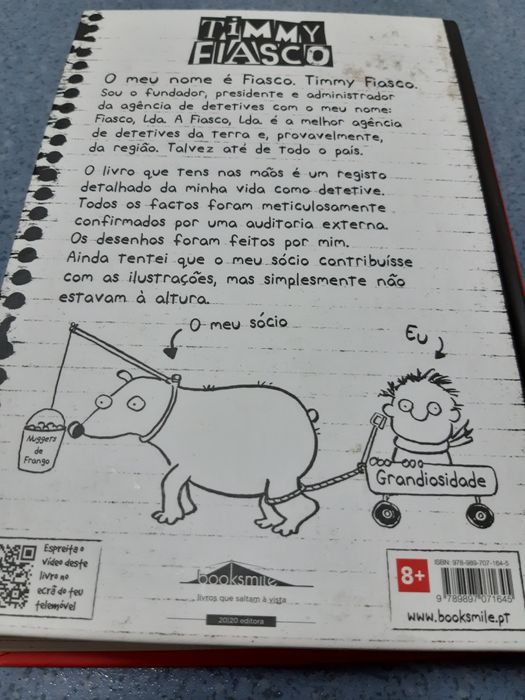 TiMMY
FIASCO
O meu nome é Fiasco. Timmy Fiasco.
Sou o fundador, presidente e administrador
da agência de detetives com o meu nome:
Fiasco, Lda. A Fiasco, Lda. é a melhor agência
de detetives da terra e, provavelmente,
da região. Talvez até de todo o país.
O livro que tens nas mãos é um registo
detalhado da minha vida como detetive.
Todos os factos foram meticulosamente
confirmados por uma auditoria externa.
Os desenhos foram feitos por mim.
Ainda tentei que o meu sócio contribuísse
com as ilustrações, mas simplesmente não
estavam à altura.
O meu sócio
Eu
Nuggets
de
Frango
Grandiosidade
Espreita o
vídeo deste
livro no
ecrã do teu
telemóvel
booksmile
livros que saltam à vista
20|20 editora
8+
ISBN: 978-989-707-164-5
9 789897 071645
www.booksmile.pt